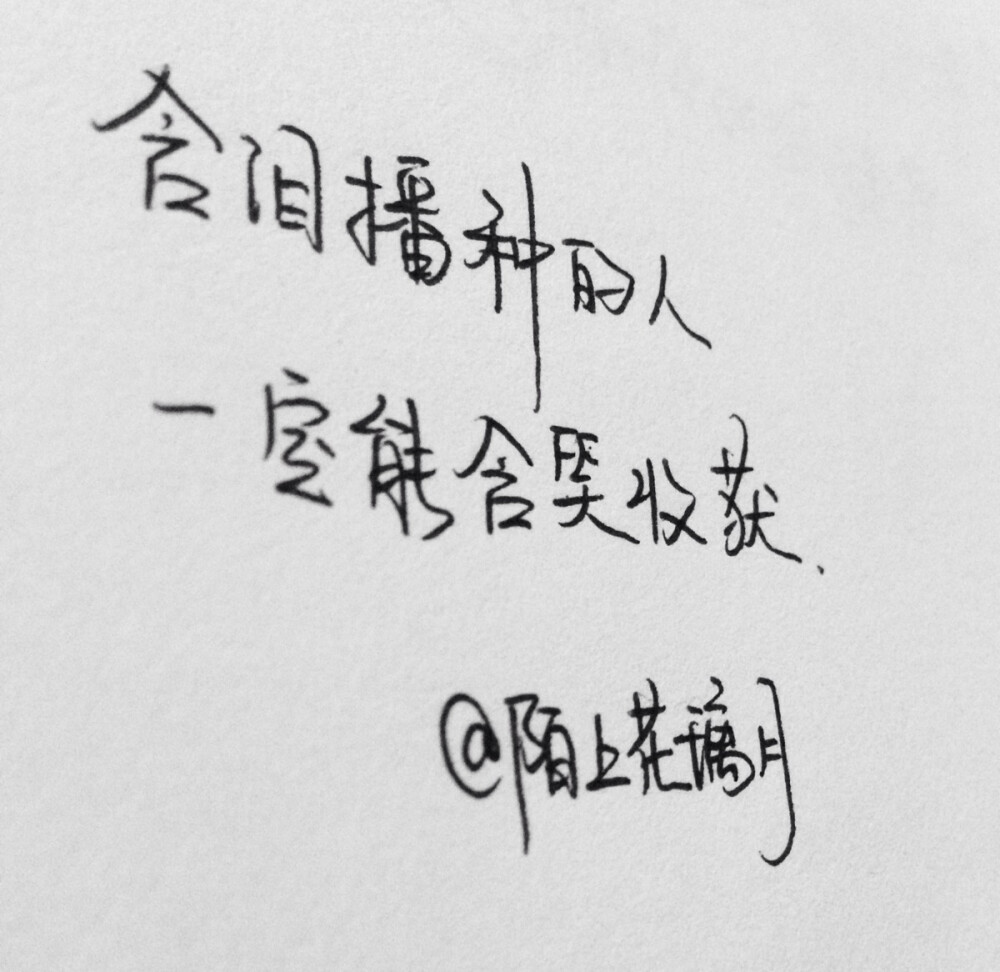 含泪播种的人
一定能含哭收获.
@陌上花璃月